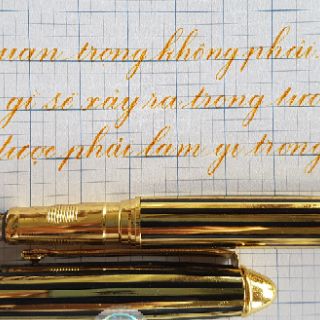 uan trọng không phải
gì sẽ xảy ra trong tươ
được phải làm gì trong